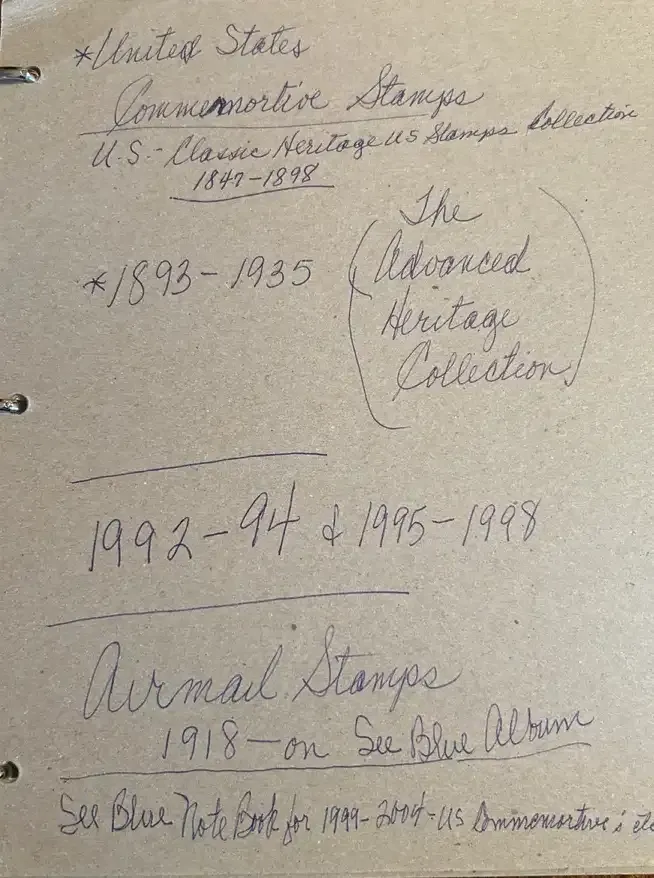 *United States
Commemortive Stamps
U.S.- Classic Heritage US Stamps Collection
1847-1898
*1893-1935
(The
Advanced
Heritage
Collection)
1992-94 & 1995-1998
Airmail Stamps
1918-on See Blue Album
See Blue Note Book for 1999-2004-US Commemortive's etc